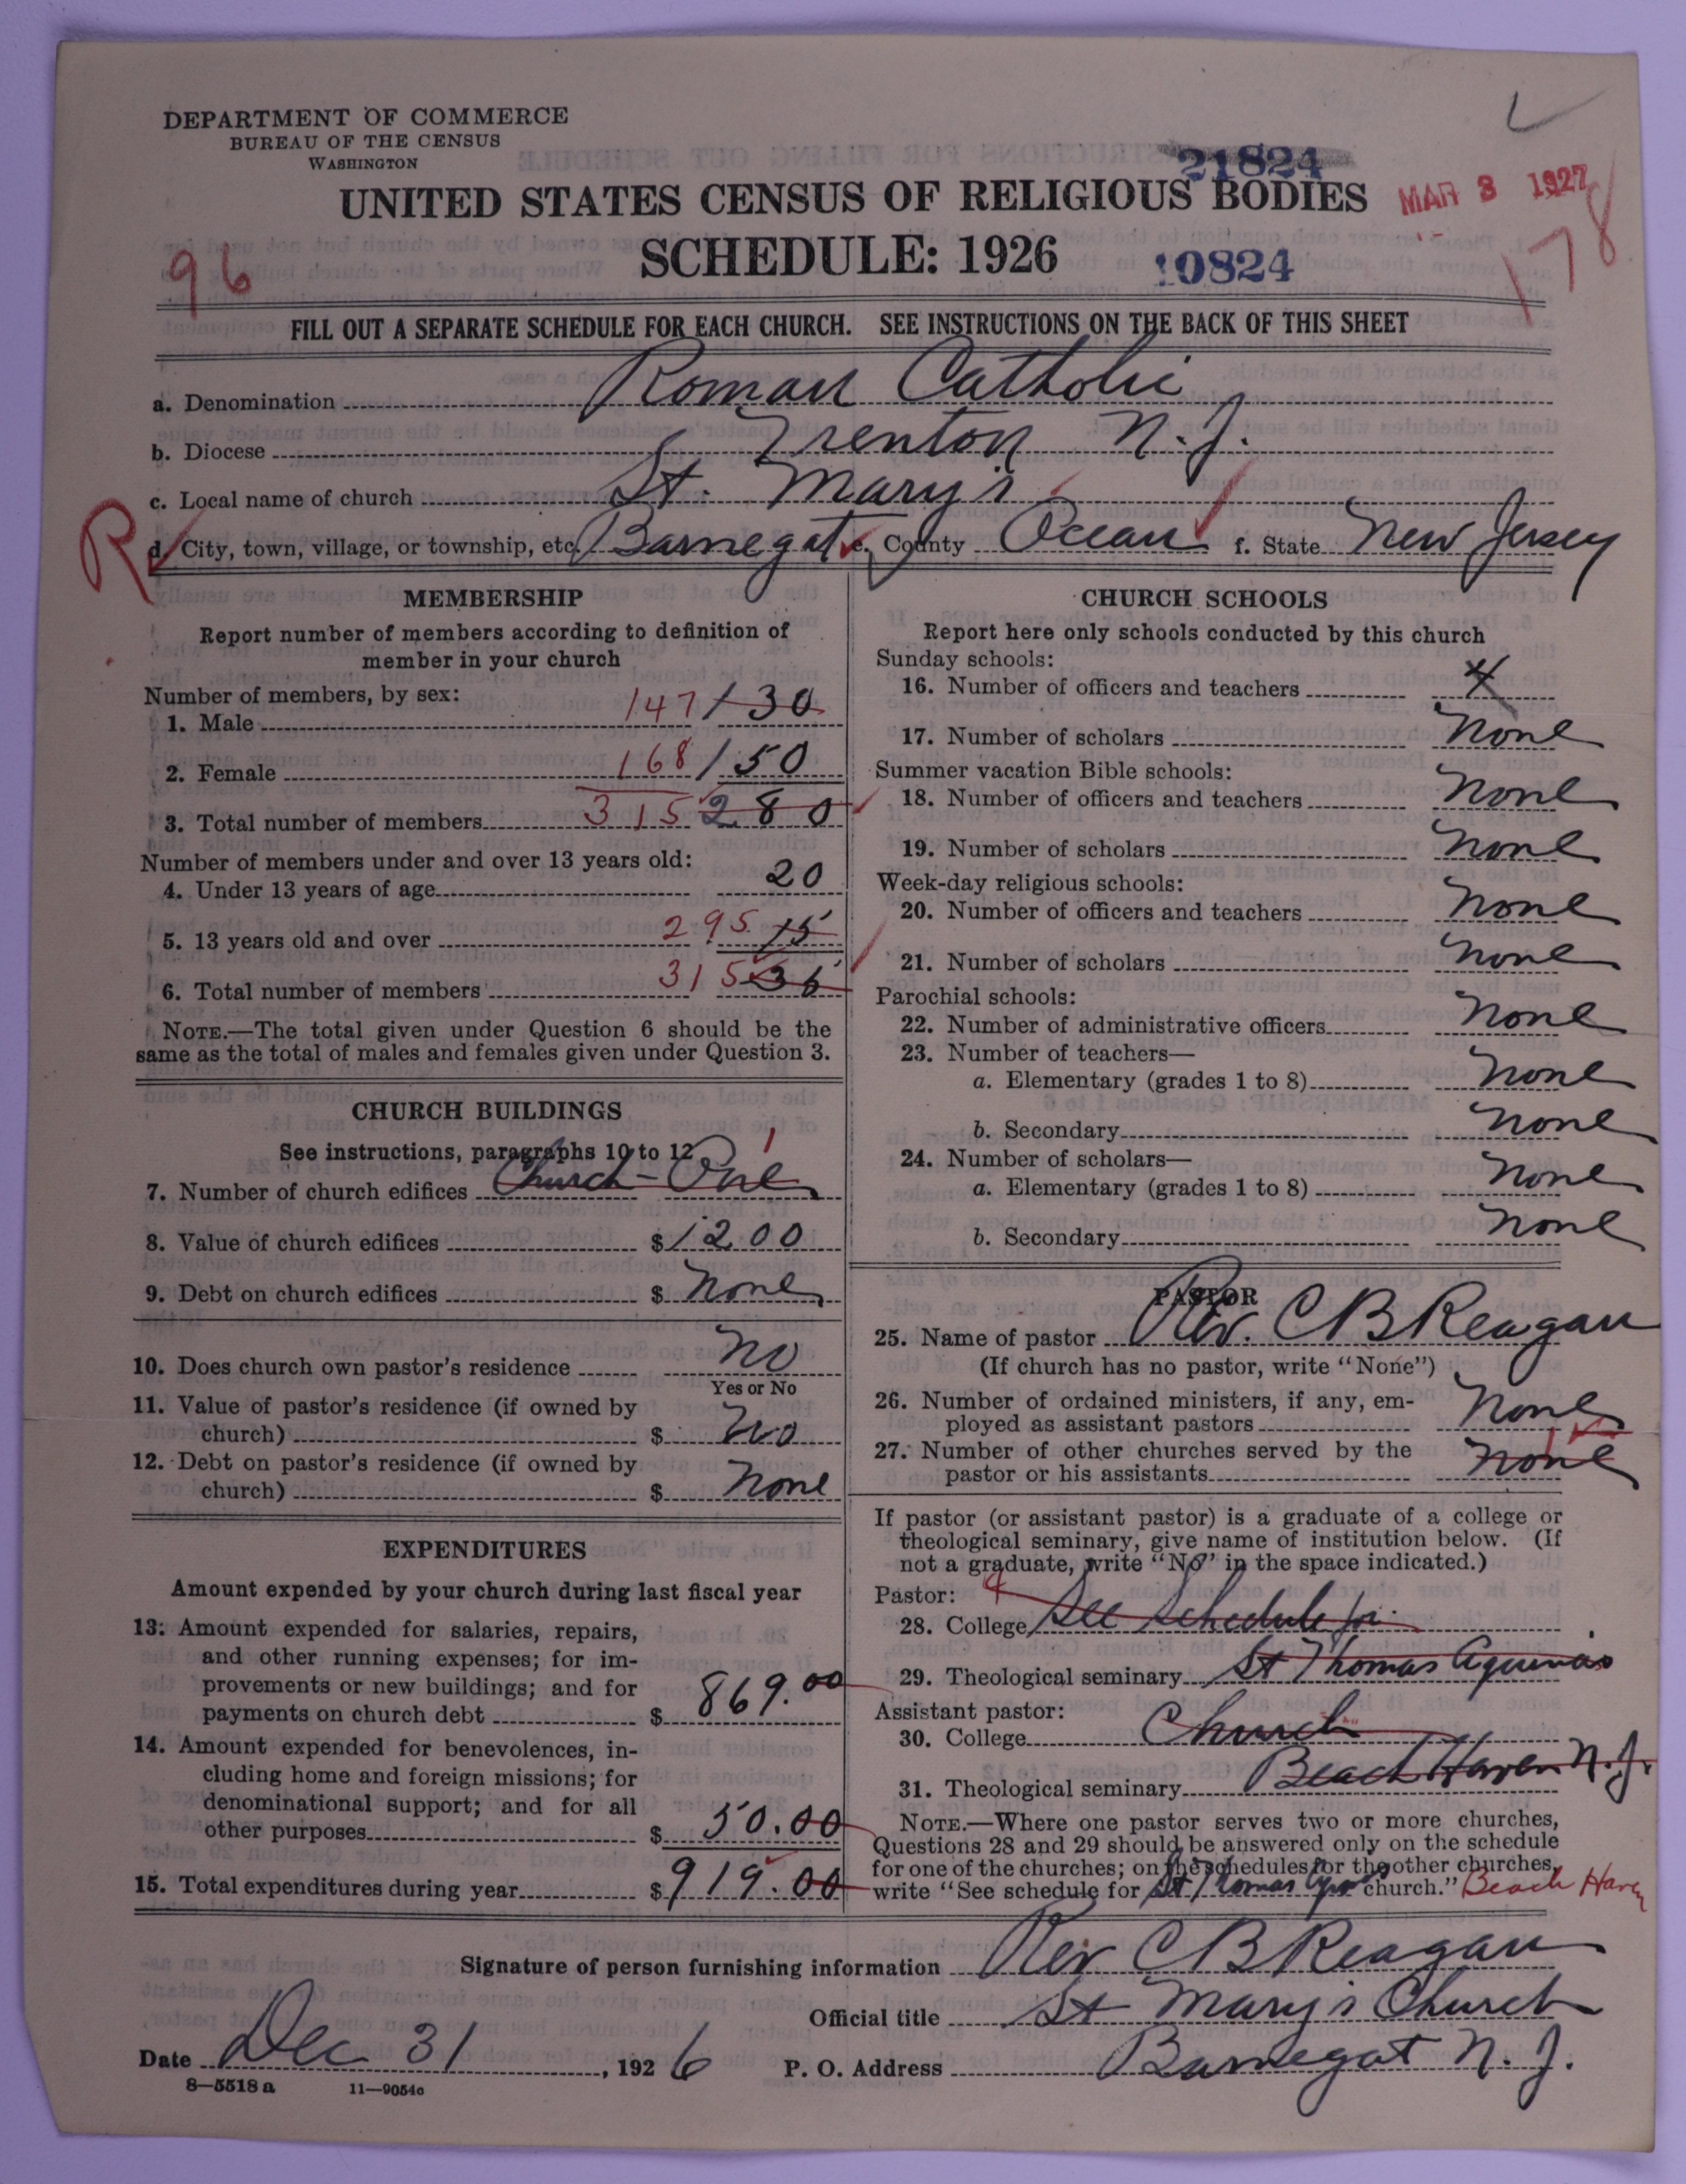 DEPARTMENT OF COMMERCE
BUREAU OF THE CENSUS
WASHINGTON
21824
UNITED STATES CENSUS OF RELIGIOUS BODIES
MAR 3 1927
SCHEDULE: 1926
96
10824
178
FILL OUT A SEPARATE SCHEDULE FOR EACH CHURCH. SEE INSTRUCTIONS ON THE BACK OF THIS SHEET
a. Denomination Roman Catholic
b. Diocese Trenton N.J.
c. Local name of church St. Mary's
R
d. City, town, village, or township, etc. Barnegat e. County Ocean f. State New Jersey
MEMBERSHIP
Report number of members according to definition of
member in your church
Number of members, by sex:
1. Male 147 130
2. Female 168 150
3. Total number of members 315 280
Number of members under and over 13 years old:
4. Under 13 years of age 20
5. 13 years old and over 295 15
6. Total number of members 315 36
NOTE.—The total given under Question 6 should be the
same as the total of males and females given under Question 3.
CHURCH BUILDINGS
See instructions, paragraphs 10 to 12
7. Number of church edifices Church - One 1
8. Value of church edifices $1200
9. Debt on church edifices $ None
10. Does church own pastor's residence No
Yes or No
11. Value of pastor's residence (if owned by
church) $ No
12. Debt on pastor's residence (if owned by
church) $ None
EXPENDITURES
Amount expended by your church during last fiscal year
13. Amount expended for salaries, repairs,
and other running expenses; for im-
provements or new buildings; and for
payments on church debt $ 869.00
14. Amount expended for benevolences, in-
cluding home and foreign missions; for
denominational support; and for all
other purposes $ 50.00
15. Total expenditures during year $ 919.00
CHURCH SCHOOLS
Report here only schools conducted by this church
Sunday schools:
16. Number of officers and teachers
17. Number of scholars None
Summer vacation Bible schools:
18. Number of officers and teachers None
19. Number of scholars None
Week-day religious schools:
20. Number of officers and teachers None
21. Number of scholars None
Parochial schools:
22. Number of administrative officers None
23. Number of teachers—
a. Elementary (grades 1 to 8) None
b. Secondary None
24. Number of scholars—
a. Elementary (grades 1 to 8) None
b. Secondary None
PASTOR
25. Name of pastor Rev. C B Reagan
(If church has no pastor, write "None")
26. Number of ordained ministers, if any, em-
ployed as assistant pastors None
27. Number of other churches served by the
pastor or his assistants None
If pastor (or assistant pastor) is a graduate of a college or
theological seminary, give name of institution below. (If
not a graduate, write "No" in the space indicated.)
Pastor:
28. College See Schedule for
29. Theological seminary St Thomas Aquinas
Assistant pastor:
30. College Church
31. Theological seminary Beach Haven N.J.
NOTE.—Where one pastor serves two or more churches,
Questions 28 and 29 should be answered only on the schedule
for one of the churches; on the schedules for the other churches,
write "See schedule for St Thomas church." Beach Haven
Signature of person furnishing information Rev C B Reagan
Official title St Mary's Church
Date Dec 31, 1926 P. O. Address Barnegat N.J.
8—5518 a 11—9054a